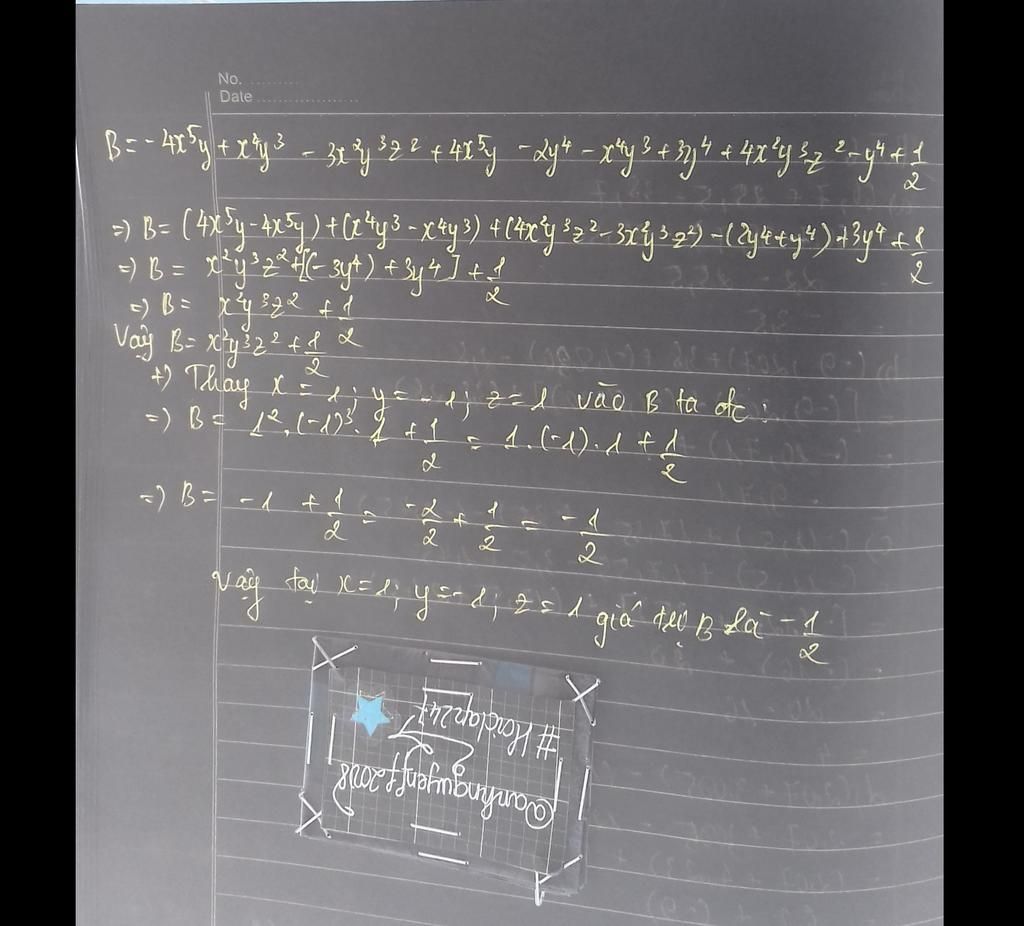 No. ..........
Date ..................
B = - 4x⁵y + x⁴y³ - 3x²y³z² + 4x⁵y - 2y⁴ - x⁴y³ + 3y⁴ + 4x²y³z² - y⁴ + 1/2
=) B = (4x⁵y - 4x⁵y) + (x⁴y³ - x⁴y³) + (4x²y³z² - 3x²y³z²) - (2y⁴ + y⁴) + 3y⁴ + 1/2
=) B = x²y³z² + [(- 3y⁴) + 3y⁴] + 1/2
=) B = x²y³z² + 1/2
Vậy B = x²y³z² + 1/2
+) Thay x = 1; y = - 1; z = 1 vào B ta đc:
=) B = 1² . (-1)³ . 1 + 1/2 = 1 . (-1) . 1 + 1/2
=) B = - 1 + 1/2 = -2/2 + 1/2 = - 1/2
Vậy tại x = 1; y = - 1; z = 1 giá trị B là - 1/2
@anhnguyenff2008
#Hoidap247